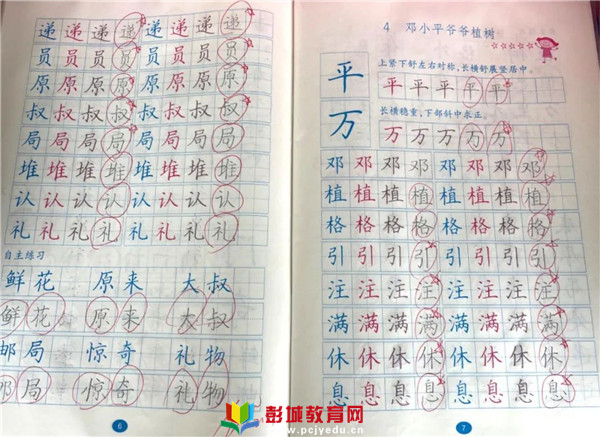 递递递递递递递递
员员员员员员员员
原原原原原原原原
叔叔叔叔叔叔叔叔
局局局局局局局局
堆堆堆堆堆堆堆堆
认认认认认认认认
礼礼礼礼礼礼礼礼
自主练习
鲜花 原来 大叔
鲜花 原来 大叔
邮局 惊奇 礼物
邮局 惊奇 礼物
6
4 邓小平爷爷植树
平
上紧下舒左右对称,长横舒展竖居中。
平平平平平
万
长横稳重,下部斜中求正。
万万万万万
邓邓邓邓邓邓邓邓
植植植植植植植植
格格格格格格格格
引引引引引引引引
注注注注注注注注
满满满满满满满满
休休休休休休休休
息息息息息息息息
7
彭城教育网
www.pcjyedu.cn